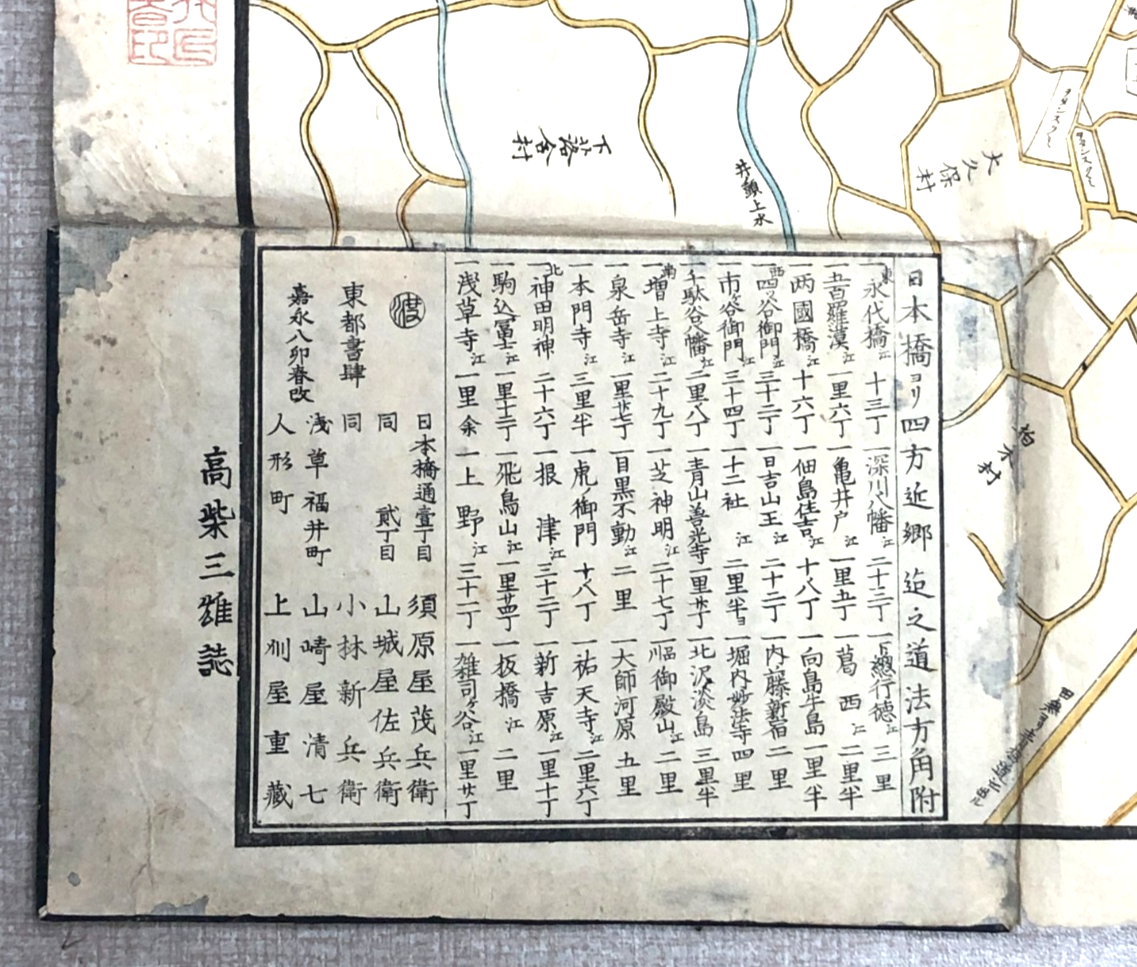 下落合村
井頭上水
大久保村
柏木村
日本橋ヨリ四方近郷迠之道法方角附
東
一永代橋江 十三丁
一深川八幡江 二十三丁
一下総行徳江 三里
一五百羅漢江 一里六丁
一亀井戸江 一里五丁
一葛西江 二里半
一両國橋江 十六丁
一佃島住吉江 十八丁
一向島牛島 一里半
西
一四ツ谷御門江 三十二丁
一日吉山王江 二十二丁
一内藤新宿 二里
一市ケ谷御門江 三十四丁
一十二社江 二里半
一堀内妙法寺 四里
一千駄谷八幡江 二里八丁
一青山善光寺 一里廿丁
一北沢淡島 三里半
南
一増上寺江 二十九丁
一芝神明江 二十七丁
一品川御殿山江 二里
一泉岳寺江 一里廿七丁
一目黒不動江 二里
一大師河原 五里
一本門寺江 三里半
一虎ノ御門 十八丁
一祐天寺江 二里六丁
北
一神田明神 二十六丁
一根津江 三十三丁
一新吉原江 一里十丁
一駒込冨士江 一里十二丁
一飛鳥山江 一里廿四丁
一板橋江 二里
一浅草寺江 一里余
一上野江 三十二丁
一雑司ケ谷江 一里廿丁
渡
東都書肆
嘉永八卯春改
日本橋通壹丁目 須原屋茂兵衛
同 貳丁目 山城屋佐兵衛
同 小林新兵衛
浅草福井町 山崎屋清七
人形町 上州屋重藏
高柴三雄誌